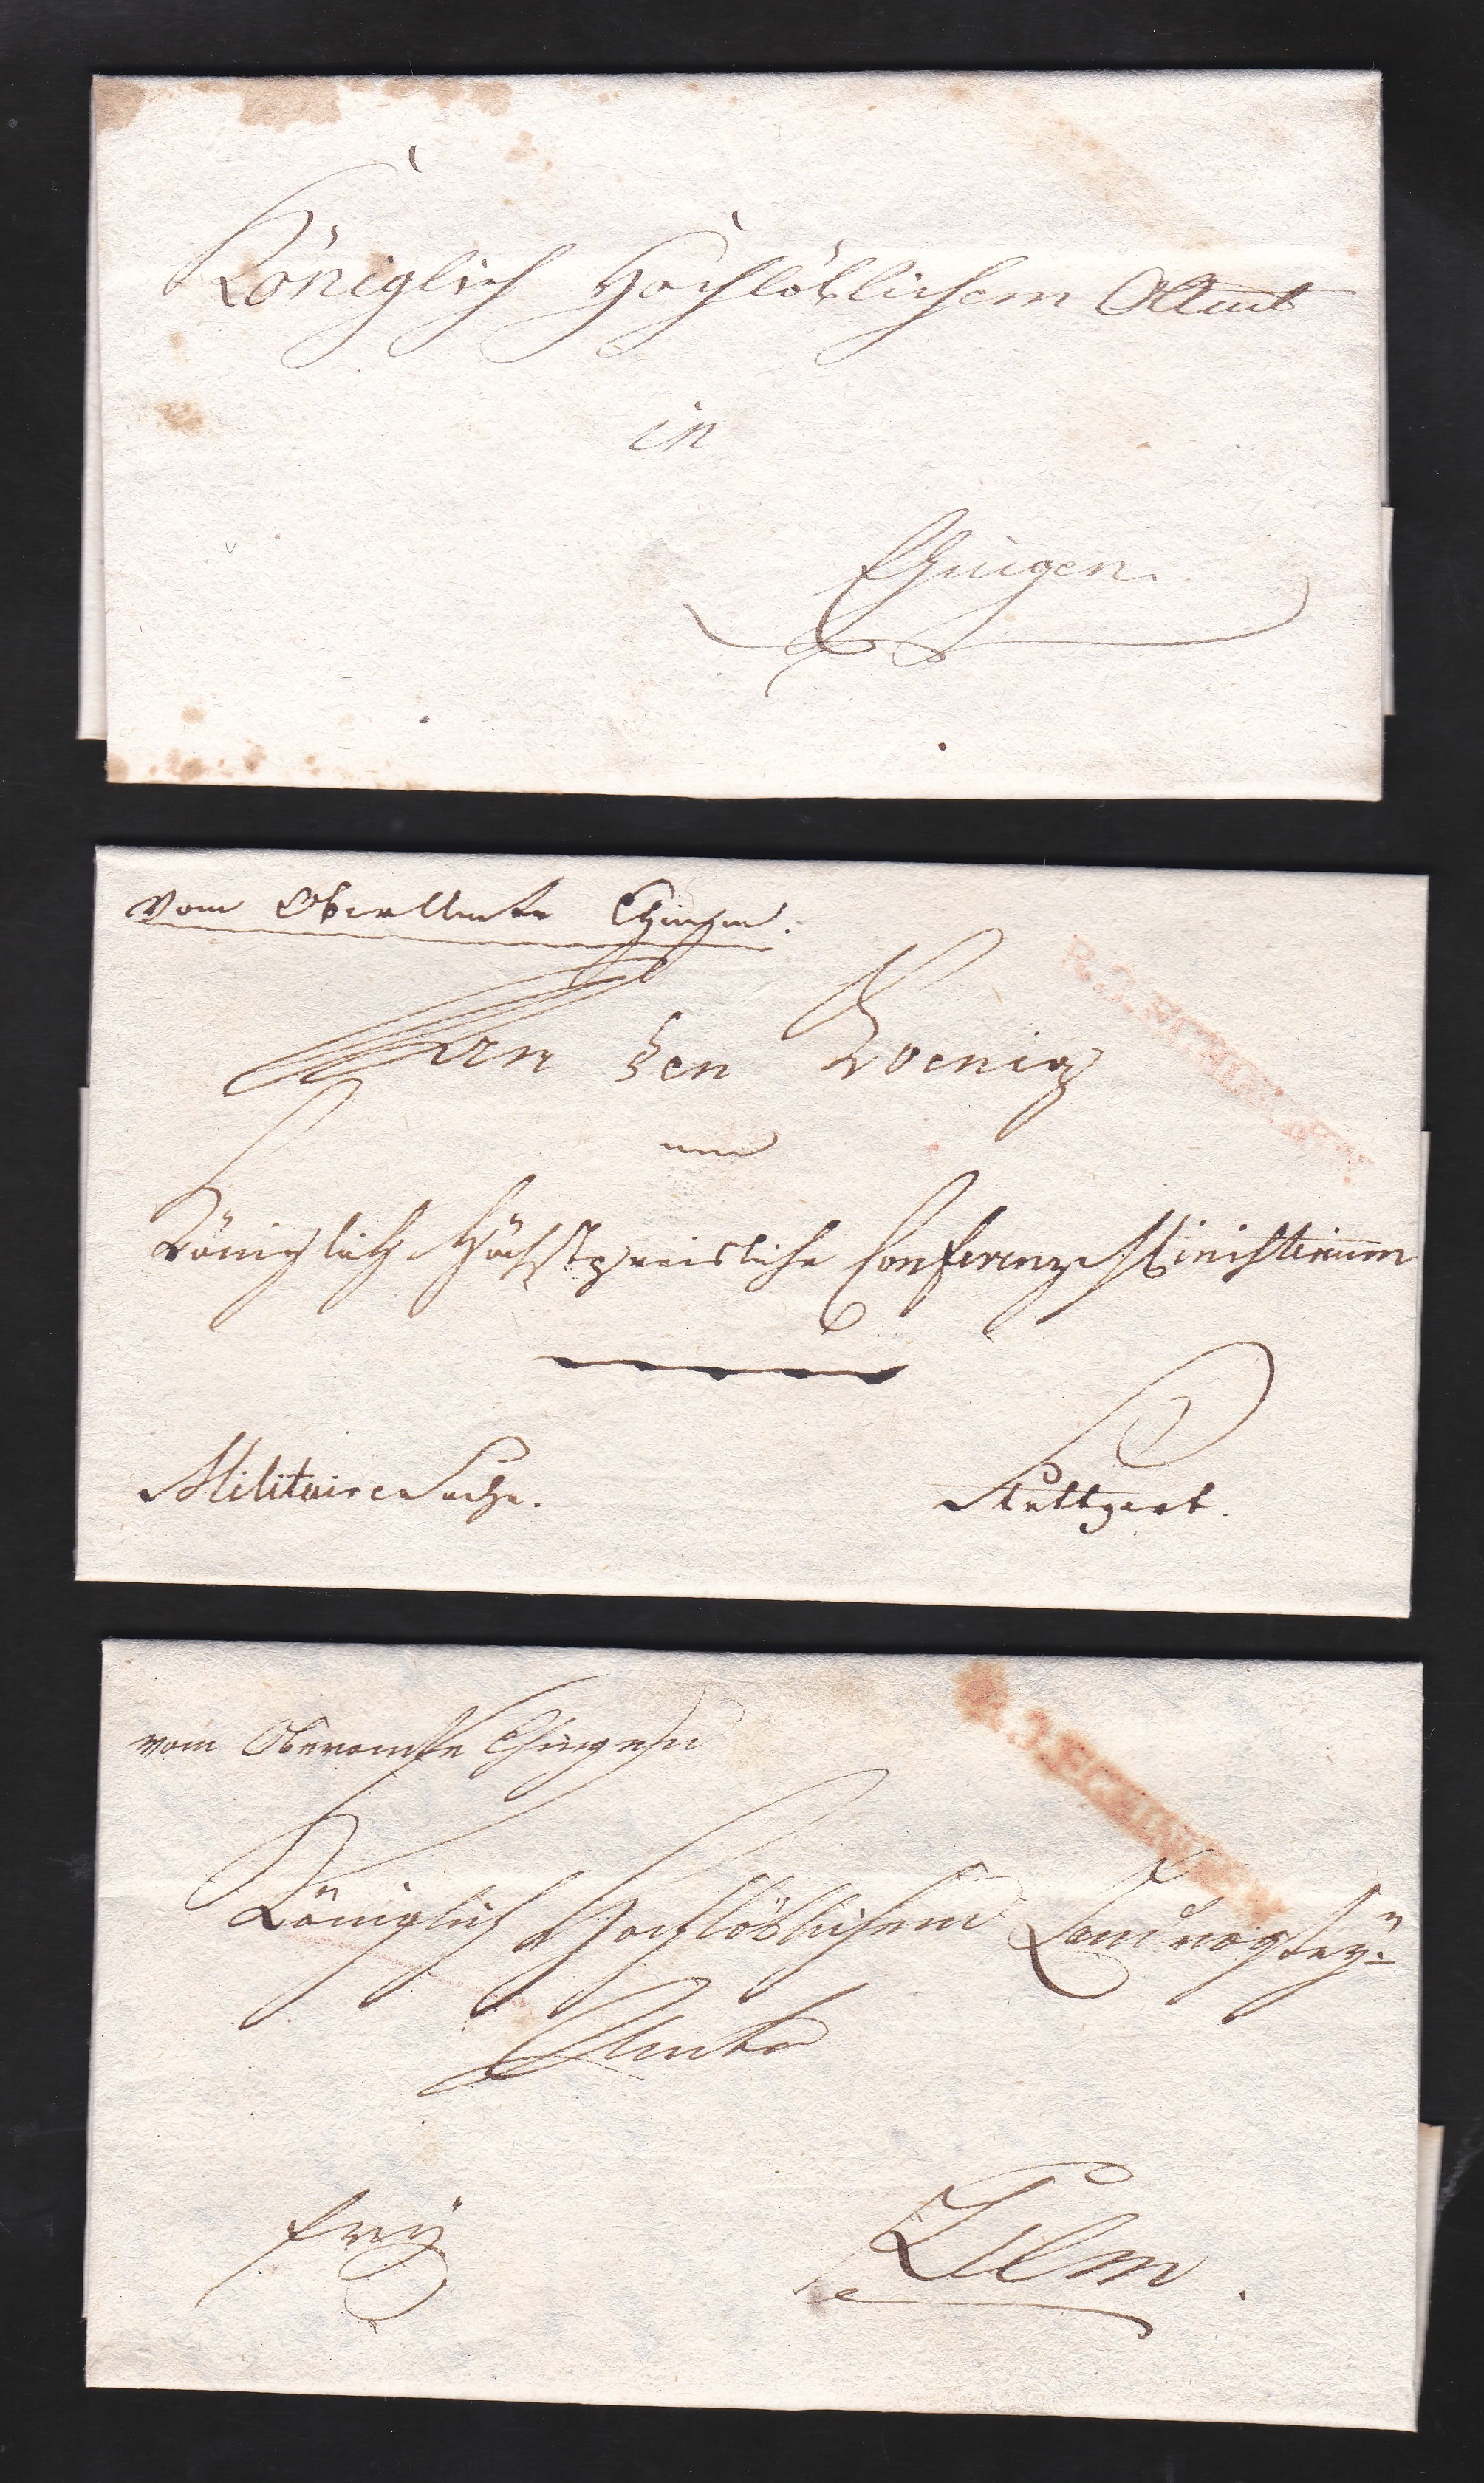 Königlich Hochlöblichem OAmt
in
Ehingen.
vom OberAmte Ehingen.
An den Koenig
zum
Königlich Höchstpreislichen Conferenz Ministerium
Militaire Sache.
Stuttgart.
vom Oberamte Ehingen
R.3.ECHINGEN
Königlich Hochlöblichem Landvogtey-
Amte
frey
Ulm.